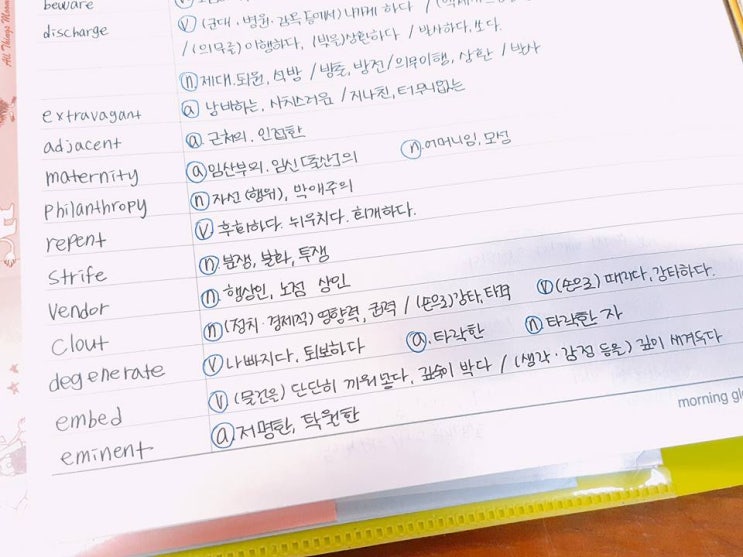 beware
discharge ⓥ (군대·병원·감옥 등에서) 나가게 하다 /
/ (의무를) 이행하다, (빚을) 상환하다 / 발사하다, 쏘다.
ⓝ 제대, 퇴원, 석방 / 방출, 방전 / 의무이행, 상환 / 발사
extravagant ⓐ 낭비하는, 사치스러움 / 지나친, 터무니없는
adjacent ⓐ 근처의, 인접한
maternity ⓐ 임산부의, 임신[출산]의 ⓝ 어머니임, 모성
philanthropy ⓝ 자선(행위), 박애주의
repent ⓥ 후회하다. 뉘우치다. 회개하다.
strife ⓝ 분쟁, 불화, 투쟁
vendor ⓝ 행상인, 노점 상인
clout ⓝ (정치·경제적) 영향력, 권력 / (손으로) 강타, 타격 ⓥ (손으로) 때리다, 강타하다.
degenerate ⓥ 나빠지다, 퇴보하다 ⓐ. 타락한 ⓝ 타락한 자
embed ⓥ (물건을) 단단히 끼워 넣다, 깊숙이 박다 / (생각·감정 등을) 깊이 새겨두다
eminent ⓐ. 저명한, 탁월한
morning gl
All Things